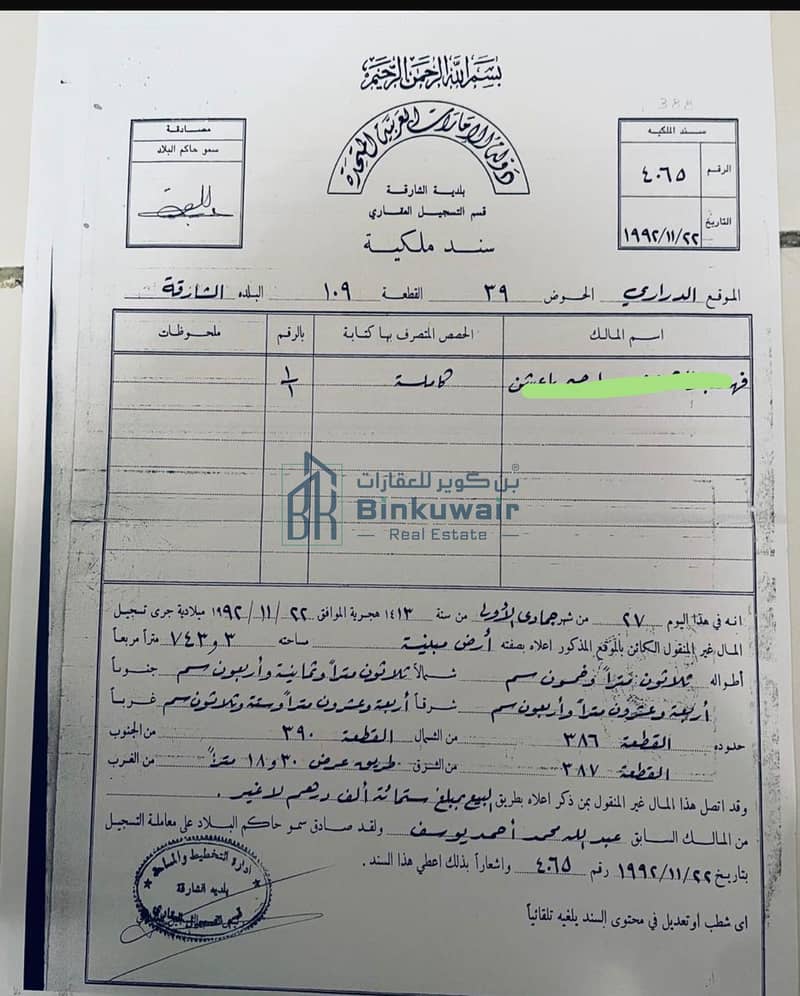 بسم الله الرحمن الرحيم
388
دولة الإمارات العربية المتحدة
بلدية الشارقة
قسم التسجيل العقاري
سند ملكية
مصادقة
سمو حاكم البلاد
سند الملكيه
الرقم ٤٠٦٥
التاريخ ١٩٩٢/١١/٢٢
الموقع الدراري الحوض ٣٩ القطعة ١٠٩ البلده الشارقة
اسم المالك الحصص المتصرف بها كتابة بالرقم ملحوظات
باعشن كاملة ١/١
بن كوير للعقارات®
BK Binkuwair
Real Estate
انه في هذا اليوم ٢٧ من شهر جمادى الأولى من سنة ١٤١٣ هجرية الموافق ١٩٩٢/١١/٢٢ ميلادية جرى تسجيل
المال غير المنقول الكائن بالموقع المذكور اعلاه بصفته أرض مبنية مساحته ٧٤٣و٣ متراً مربعاً
أطواله ثلاثون متراً وخمسون سم شمالاً ثلاثون متراً وثمانية وأربعون سم جنوباً
أربعة وعشرون متراً وأربعون سم شرقاً أربعة وعشرون متراً وستة وثلاثون سم غرباً
حدوده القطعة ٣٨٦ من الشمال القطعة ٣٩٠ من الجنوب
القطعة ٣٨٧ من الشرق طريق عرض ٣٠و١٨ متراً من الغرب
وقد اتصل هذا المال غير المنقول بمن ذكر اعلاه بطريق البيع بمبلغ ستمائة ألف درهم لاغير .
من المالك السابق عبدالله محمد أحمد يوسف ولقد صادق سمو حاكم البلاد على معاملة التسجيل
بتاريخ ١٩٩٢/١١/٢٢ رقم ٤٠٦٥ واشعاراً بذلك اعطي هذا السند .
اى شطب او تعديل في محتوى السند يلغيه تلقائياً
ادارة التخطيط والمساحة
بلدية الشارقة